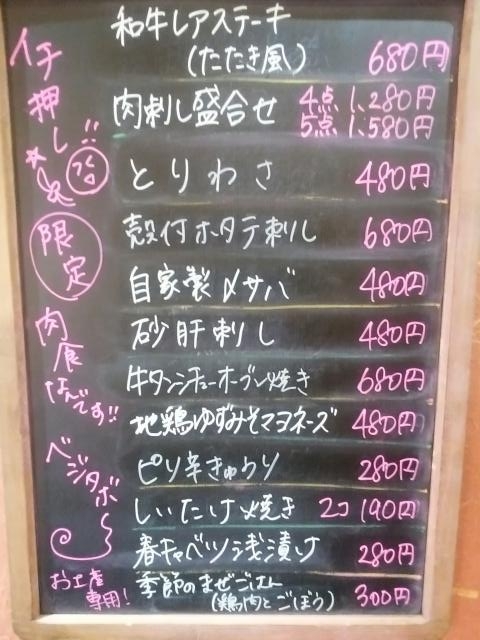 和牛レアステーキ
(たたき風) 680円
肉刺し盛合せ 4点 1,280円
5点 1,580円
とりわさ 480円
殻付ホタテ刺し 680円
自家製〆サバ 480円
砂肝刺し 480円
牛タンシチューオーブン焼き 680円
地鶏ゆずみそマヨネーズ 480円
ピリ辛きゅうり 280円
しいたけ焼き 2コ 190円
春キャベツ浅漬け 280円
季節のまぜごはん
(鶏肉とごぼう) 300円
イチ
押し!!
限定
肉食
なんです!!
ベジタボ
お土産
専用!